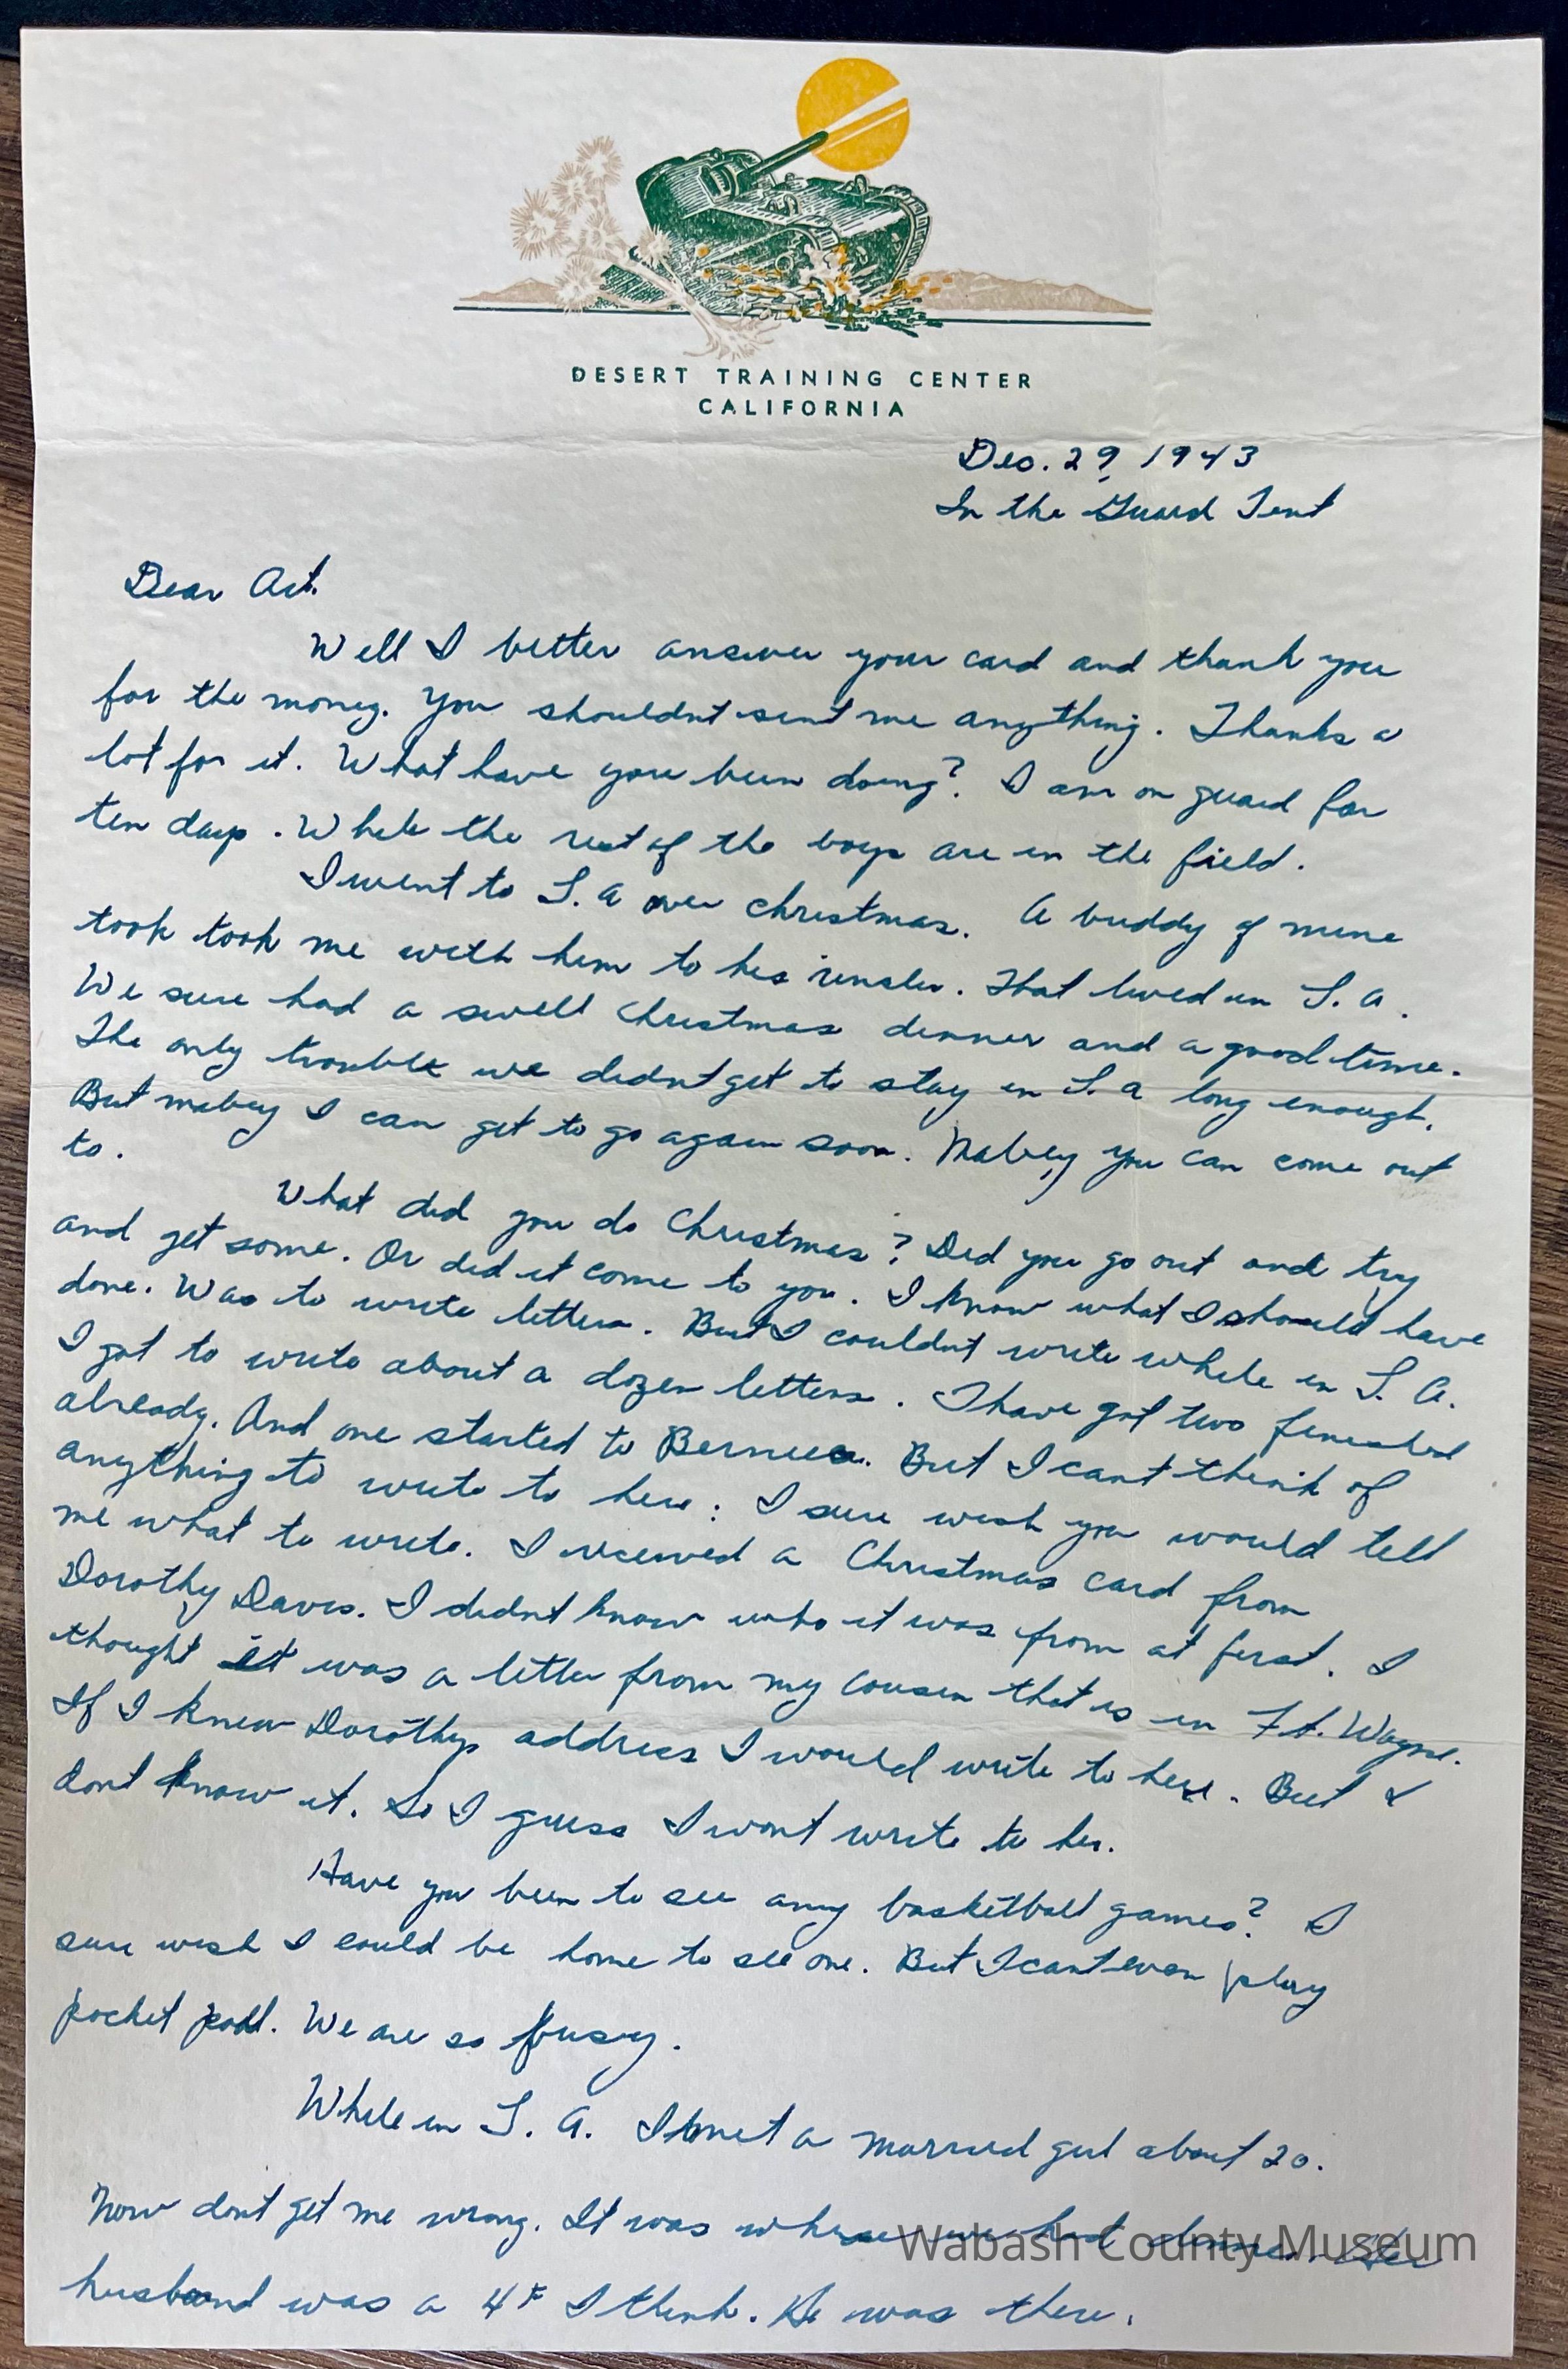 DESERT TRAINING CENTER
CALIFORNIA
Dec. 29, 1943
In the Guard Tent
Dear Art.
Well I better answer your card and thank you
for the money. You shouldnt sent me anything. Thanks a
lot for it. What have you been doing? I am on guard for
ten days. While the rest of the boys are in the field.
I went to L.A over Christmas. A buddy of mine
took took me with him to his unsler. That lived in L.A.
We sure had a swell Christmas dinner and a good time.
The only trouble we didnt get to stay in L.A long enough.
But mabey I can get to go again soon. Mabey you can come out
to.
What did you do Christmas? Did you go out and try
and get some. Or did it come to you. I know what I should have
done. Was to write letters. But I couldnt write while in L.A.
I got to write about a dozen letters. I have got two finished
already. And one started to Bernice. But I cant think of
anything to write to her. I sure wish you would tell
me what to write. I received a Christmas card from
Dorothy Davis. I didnt know who it was from at first. I
thought it was a letter from my cousin that is in Ft. Wayne.
If I knew Dorothys address I would write to her. But I
dont know it. So I guess I wont write to her.
Have you been to see any basketball games? I
sure wish I could be home to see one. But I cant even play
pocket pool. We are so busy.
While in L.A. I met a married girl about 20.
Now dont get me wrong. It was where we had dinner. Her
husband was a 4F I think. He was there.
Wabash County Museum